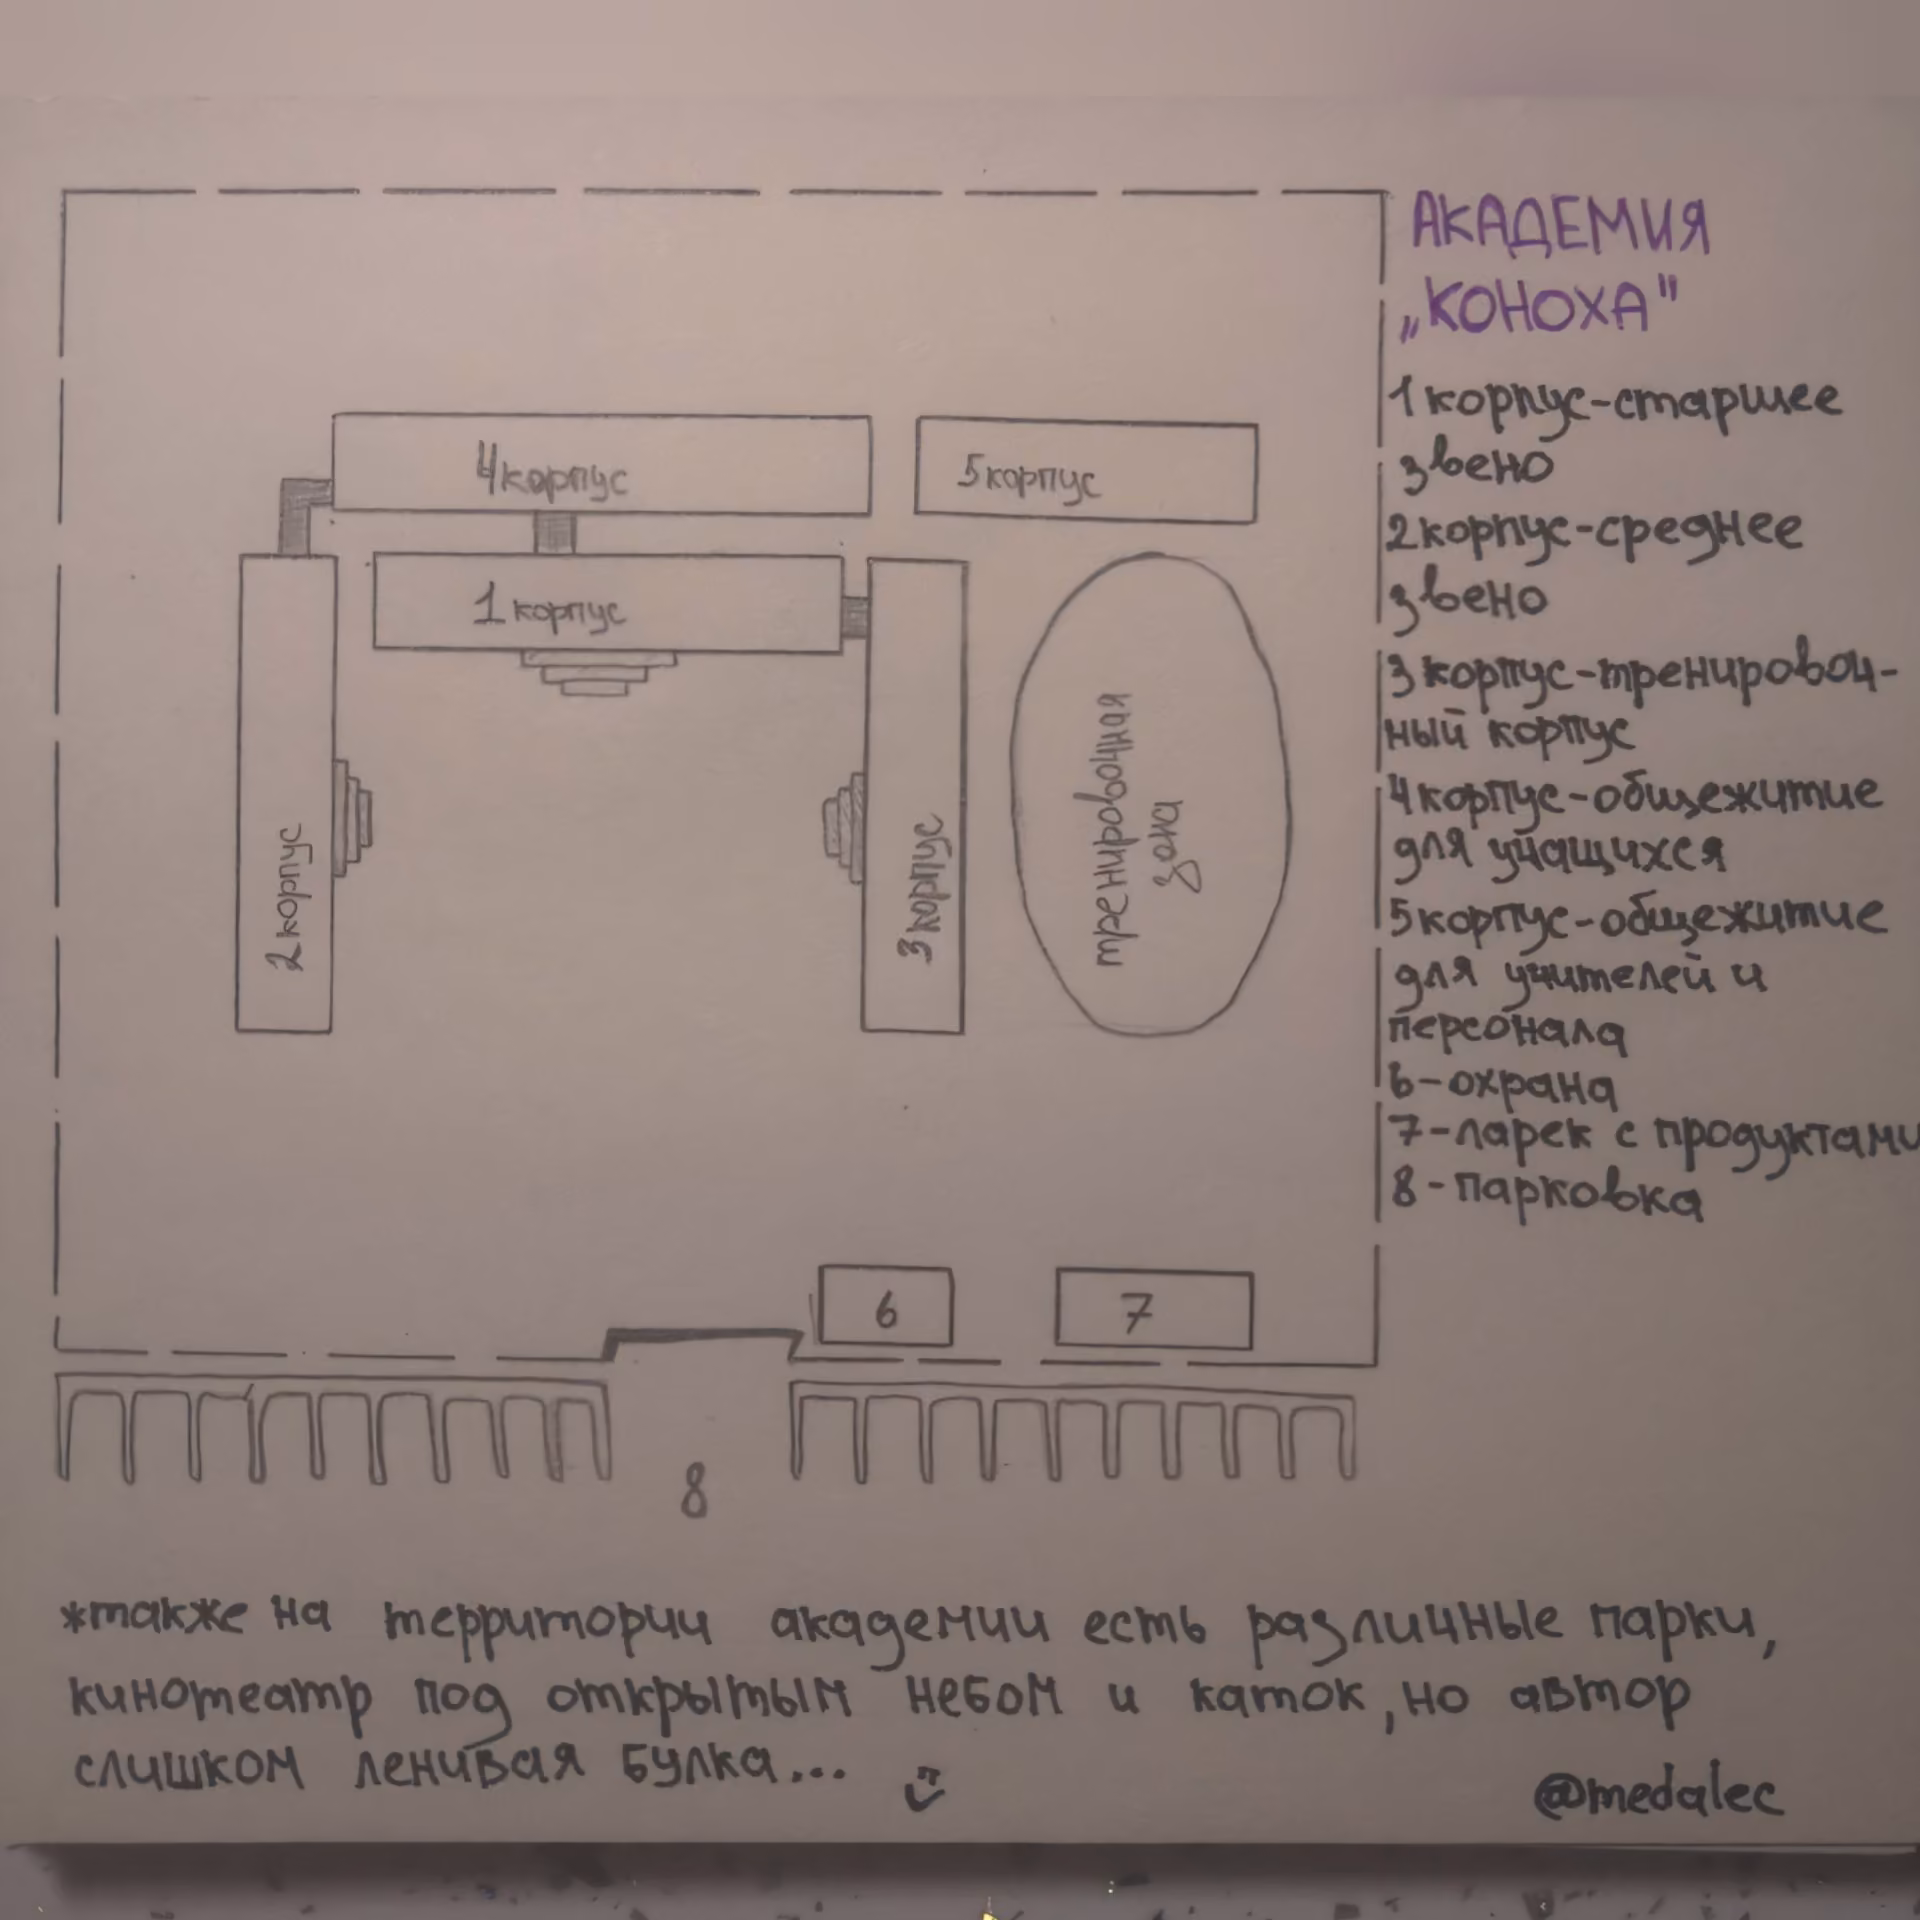 АКАДЕМИЯ
„КОНОХА"
1 корпус-старшее
звено
2 корпус-среднее
звено
3 корпус-тренировоч-
ный корпус
4 корпус-общежитие
для учащихся
5 корпус-общежитие
для учителей и
персонала
6-охрана
7-ларек с продуктами
8-парковка
4 корпус
5 корпус
1 корпус
2 корпус
3 корпус
тренировочная
зона
6
7
8
*также на территории академии есть различные парки,
кинотеатр под открытым небом и каток, но автор
слишком ленивая булка...
@medalec